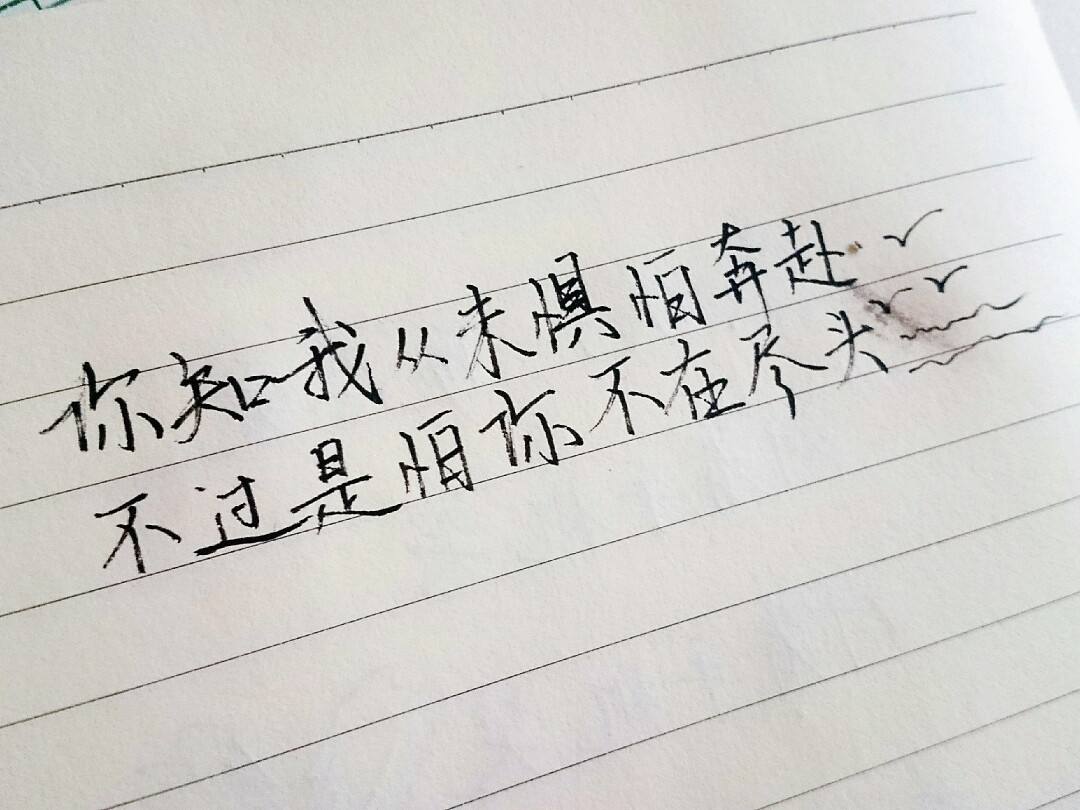 你知我从未惧怕奔赴
不过是怕你不在尽头